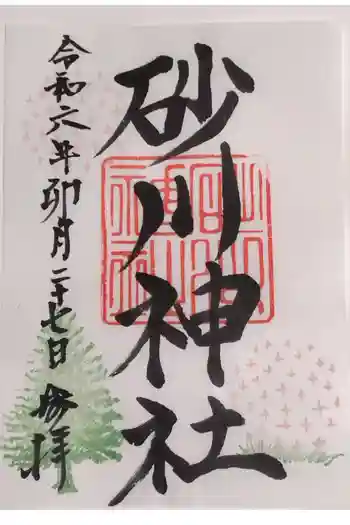 砂川神社
令和六年卯月二十七日 参拝